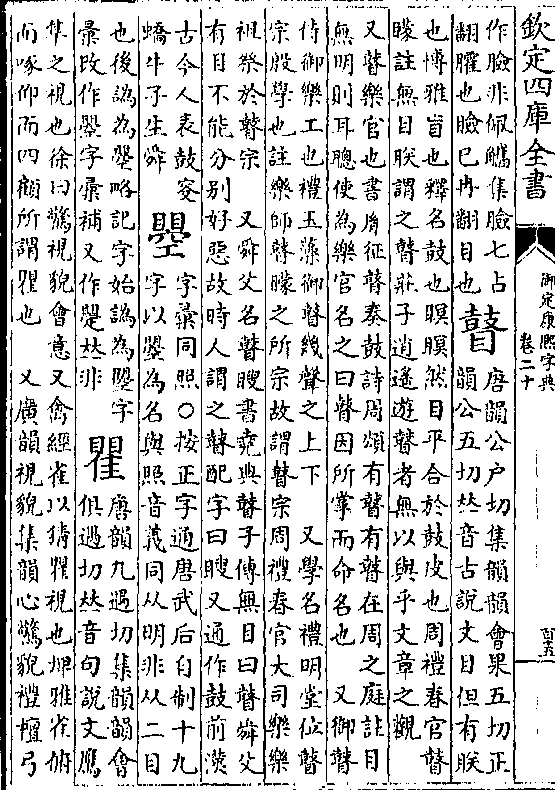 欽定四庫全書
御定康熙字典
卷二十
百五
作臉非佩觿集臉七占
翻臞也瞼巳冉翻目也
瞽
唐韻公戶切集韻韻會果五切正
韻公五切𠀤音古說文目但有朕
也博雅盲也釋名鼓也瞑瞑然目平合於鼓皮也周禮春官瞽
矇註無目朕謂之瞽莊子逍遙遊瞽者無以與乎文章之觀
又瞽樂官也書胤征瞽奏鼓詩周頌有瞽有瞽在周之庭註目
無明則耳聰使為樂官名之曰瞽因所掌而命名也　又御瞽
侍御樂工也禮玉藻御瞽幾聲之上下　又學名禮明堂位瞽
宗殷學也註樂師瞽矇之所宗故謂瞽宗周禮春官大司樂樂
祖祭於瞽宗　又舜父名瞽瞍書堯典瞽子傳無目曰瞽舜父
有目不能分別好惡故時人謂之瞽配字曰瞍又通作鼓前漢
古今人表鼓叜
蟜牛子生舜
瞾
字彙同照○按正字通唐武后自制十九
字以曌為名與照音義同从明非从二目
也後譌為瞾略記字始譌為瞾字
彙改作曌字彙補又作𠀤非
瞿
唐韻九遇切集韻韻會
俱遇切𠀤音句說文鷹
隼之視也徐曰驚視貌會意又禽經雀以猜瞿視也埤雅雀俯
而啄仰而四顧所謂瞿也　又廣韻視貌集韻心驚貌禮檀弓